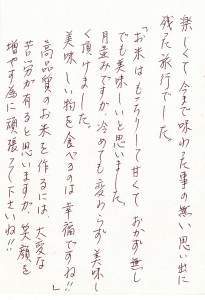 楽しくて今まで味わった事の無い思い出に
残った旅行でした。
「お米はもっちりして甘くておかず無し
でも美味しいと思いました。
月並みですが、冷めても変わらず美味し
く頂けました。
美味しい物を食べるのは幸福ですね!!」
高品質のお米を作るには、大変な
苦労が有ると思いますが、笑顔を
増やす為に頑張って下さいね!!